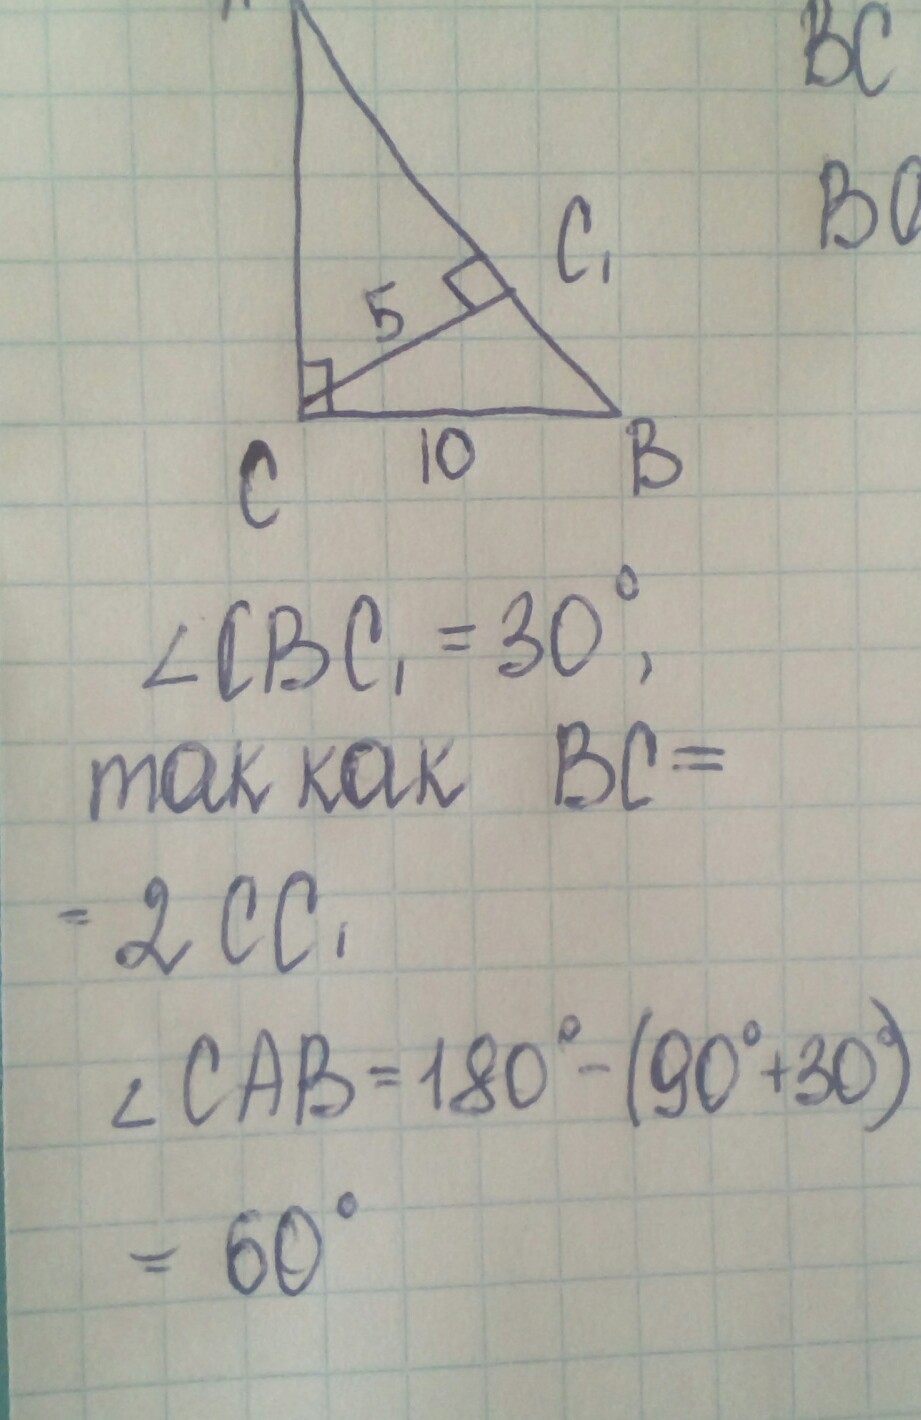 BC
BC
C₁
5
C
10
B
∠CBC₁ = 30°,
так как BC =
= 2 CC₁
∠CAB = 180° - (90° + 30°)
= 60°